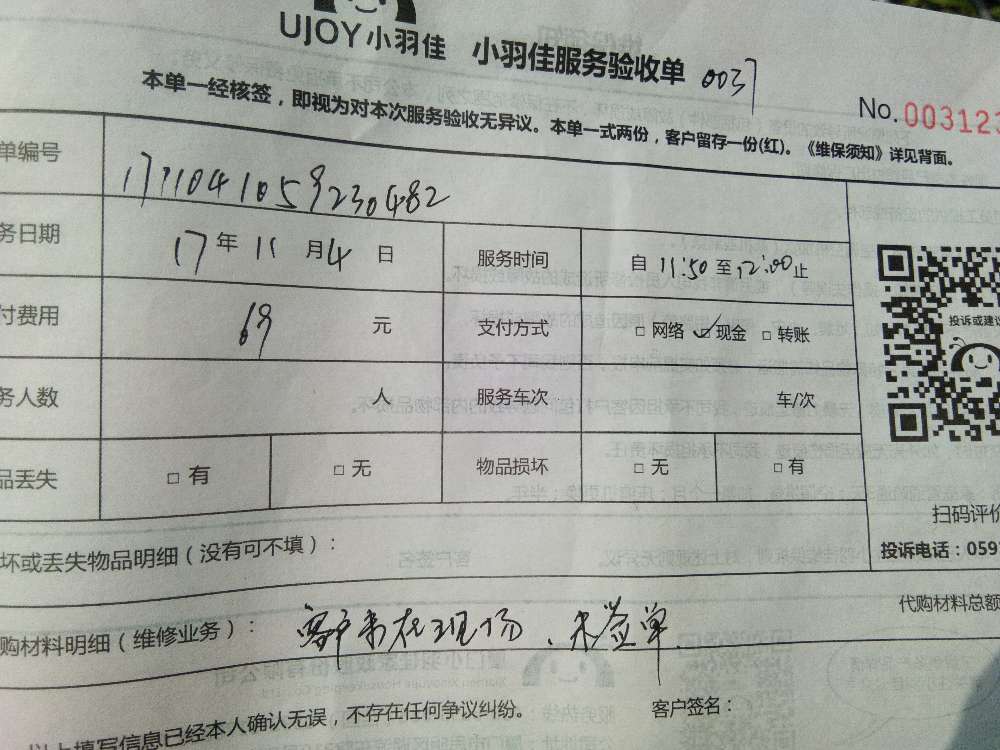 UJOY小羽佳 小羽佳服务验收单 0037
No.003123
本单一经核签，即视为对本次服务验收无异议。本单一式两份，客户留存一份(红)。《维保须知》详见背面。
单编号 171104105923 0482
务日期 17年 11月4日 服务时间 自 11:50至12:00止
付费用 69 元 支付方式 □网络 ☑现金 □转账
务人数 人 服务车次 车/次
品丢失 □有 □无 物品损坏 □无 □有
投诉或建议
扫码评价
投诉电话：059
坏或丢失物品明细（没有可不填）：
代购材料总额
购材料明细（维修业务）： 客户未在现场、未签单
以上填写信息已经本人确认无误，不存在任何争议纠纷。 客户签名：